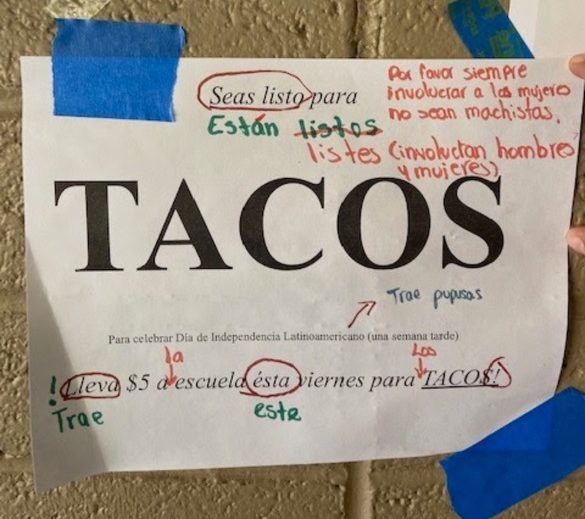 Seas listo para
Por favor siempre
involucrar a las mujero
no sean machistas.
Están listos
listes (involuctan hombres
y mujeres)
TACOS
Trae pupusas
Para celebrar Día de Independencia Latinoamericano (una semana tarde)
la
Los
¡ Lleva $5 a escuela ésta viernes para TACOS!
Trae
este